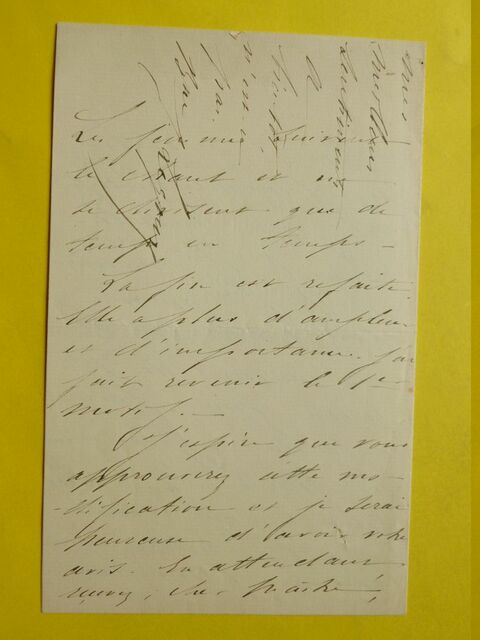 Les femmes suivent
le courant et ne
se divisent que de
temps en temps —
La fin est refaite.
Elle a plus d'ampleur
et d'importance. J'ai
fait revenir le 1er
motif. —
J'espère que vous
approuverez cette mo-
-dification et je serai
heureuse d'avoir votre
avis. En attendant,
recevez, cher Maître,
mes
meilleurs
sentiments